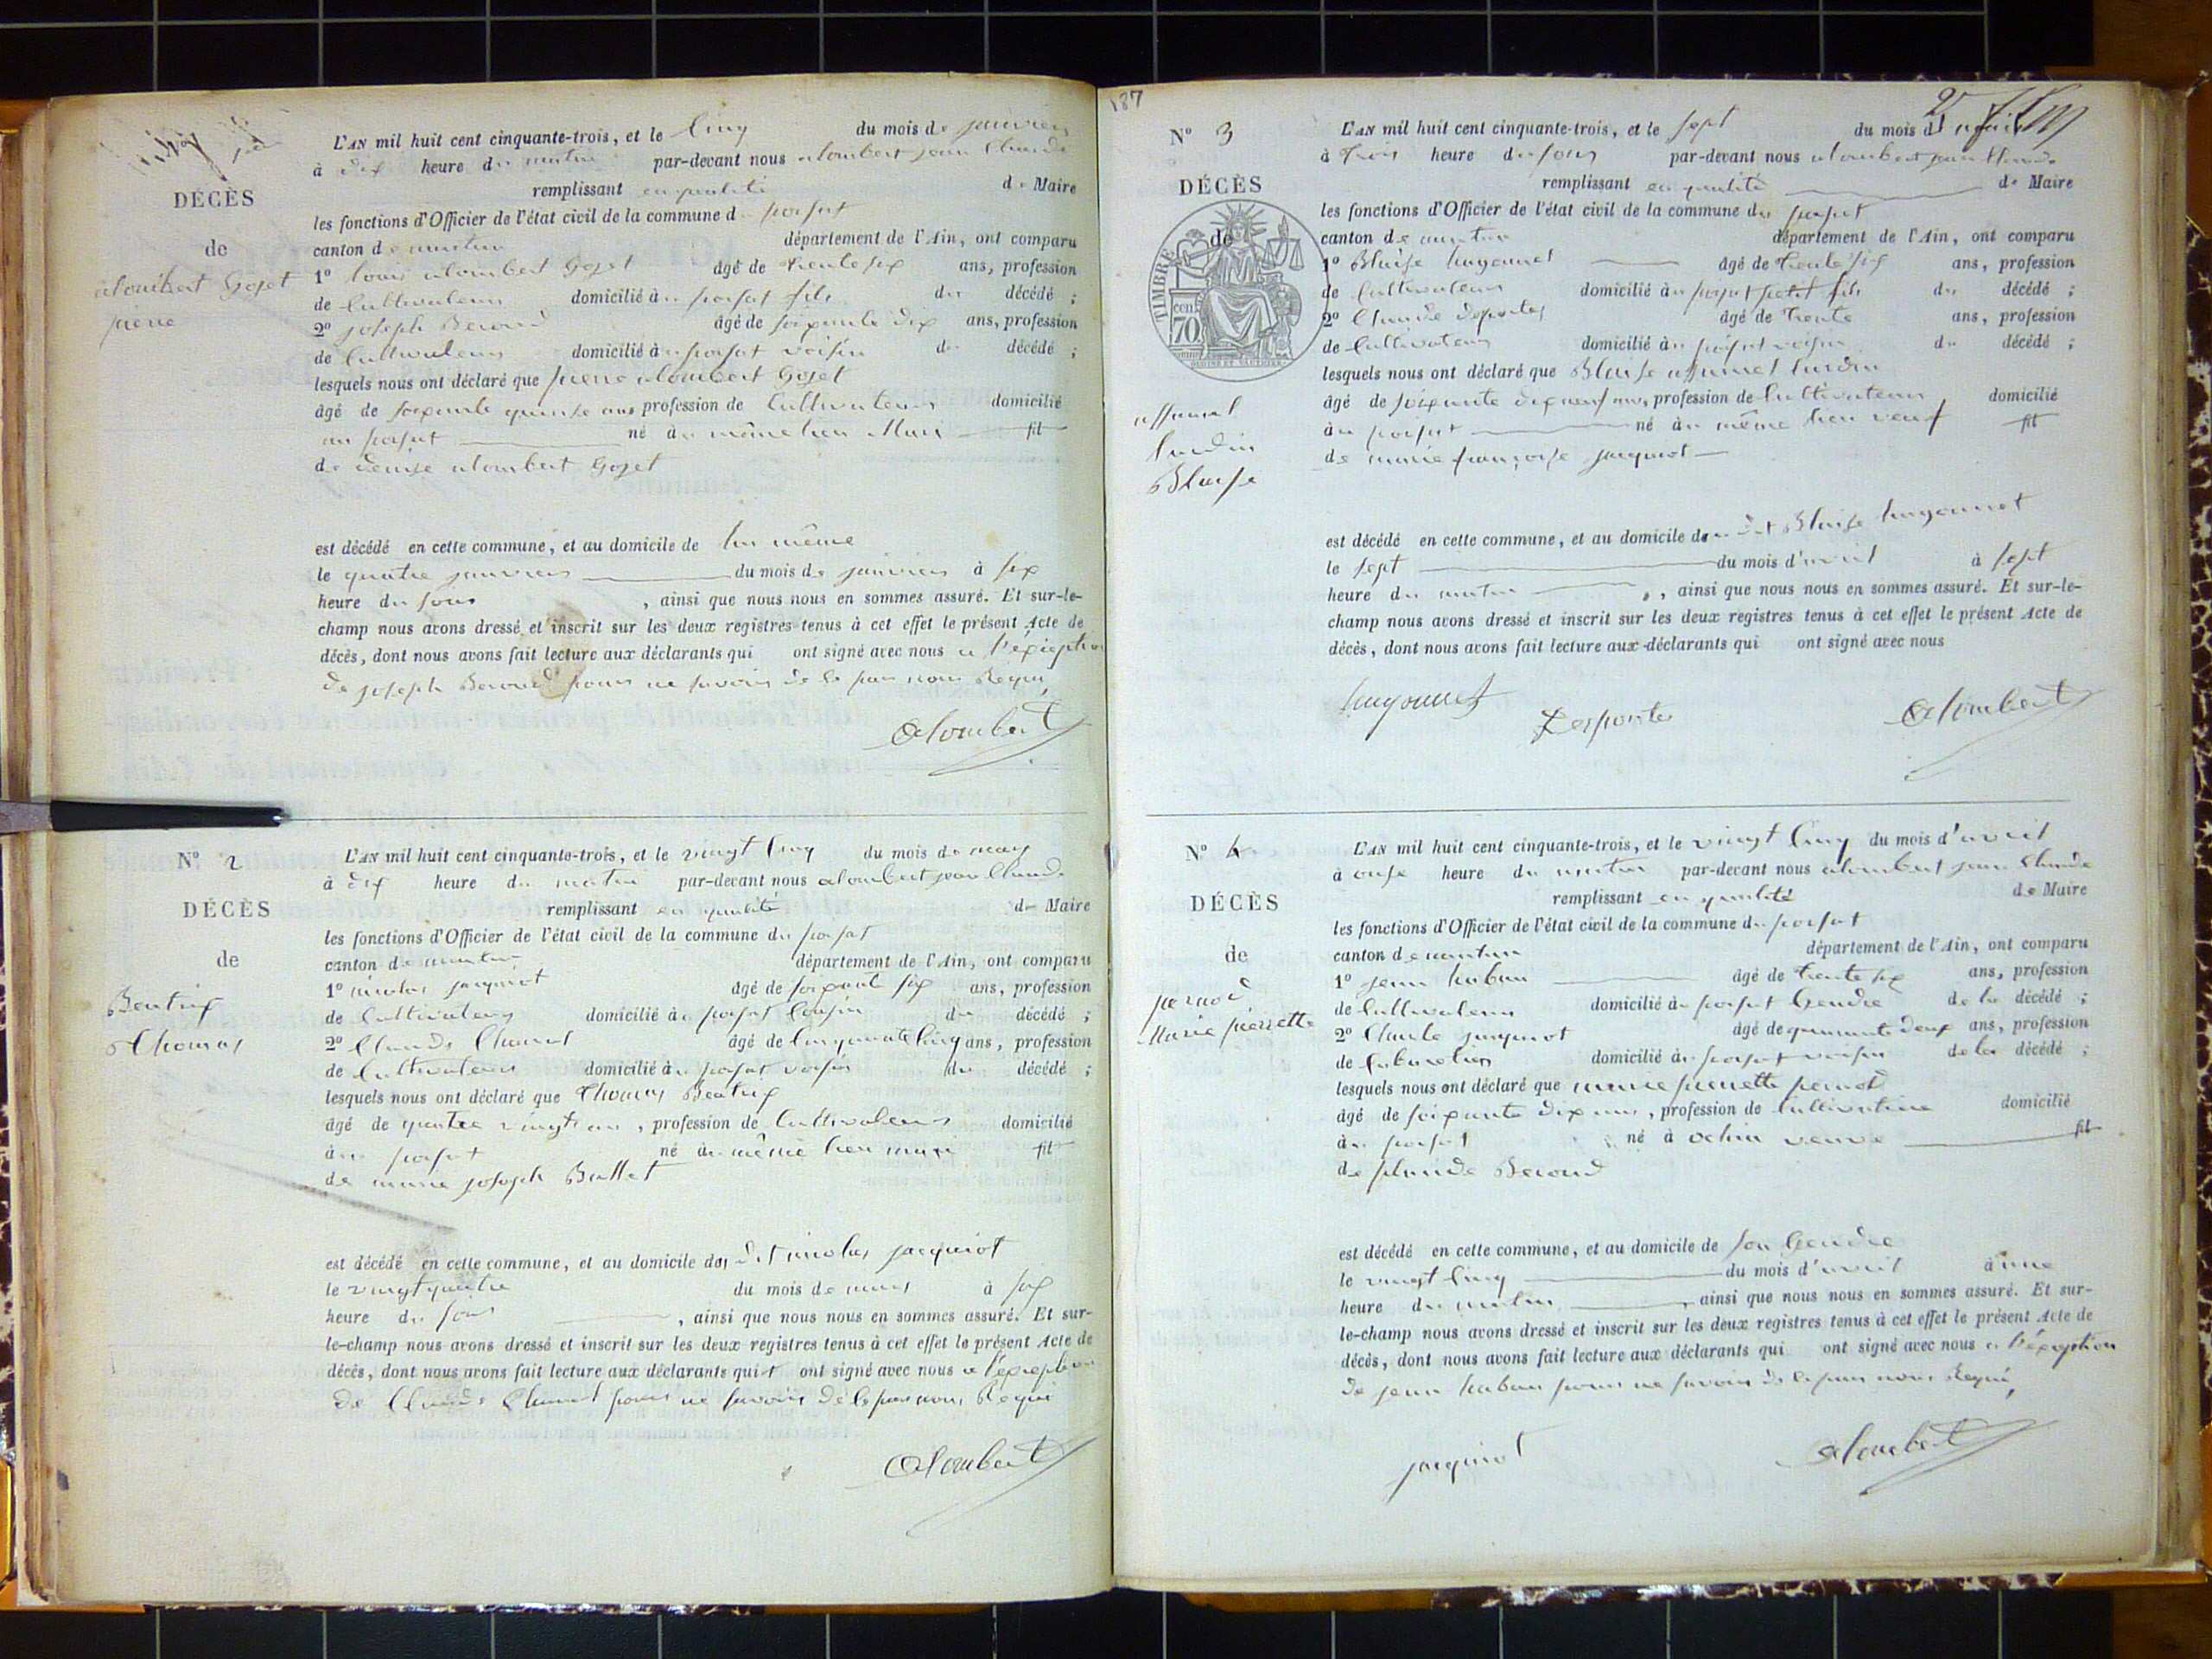 DÉCÈS
de
alombert Gozet
pierre
L'AN mil huit cent cinquante-trois, et le cinq du mois de janvier
à dix heure du matin par-devant nous alombert jean Claude
remplissant en qualité de Maire
les fonctions d'Officier de l'état civil de la commune du poisat
canton de nantua département de l'Ain, ont comparu
1° louis alombert Gozet âgé de trente six ans, profession
de Cultivateur domicilié au poisat fils du décédé ;
2° joseph Beroud âgé de soixante dix ans, profession
de Cultivateur domicilié au poisat voisin du décédé ;
lesquels nous ont déclaré que pierre alombert Gozet
âgé de soixante quinse ans profession de Cultivateur domicilié
au poisat né au même lieu Mari fil
de denise alombert Gozet
est décédé en cette commune, et au domicile de lui même
le quatre janvier du mois de janvier à six
heure du soir, ainsi que nous nous en sommes assuré. Et sur-le-
champ nous avons dressé et inscrit sur les deux registres tenus à cet effet le présent Acte de
décès, dont nous avons fait lecture aux déclarants qui ont signé avec nous a l'exception
de joseph Beroud pour ne savoir de ce par nous Requi
alombert
N° 2
DÉCÈS
de
Beatrix
Thomas
L'AN mil huit cent cinquante-trois, et le vingt cinq du mois de
à dix heure du matin par-devant nous alombert jean Claude
remplissant en qualité de Maire
les fonctions d'Officier de l'état civil de la commune du poisat
canton de nantua département de l'Ain, ont comparu
1° nicolas jacquiot âgé de soixante six ans, profession
de Cultivateur domicilié au poisat Cousin du décédé ;
2° Claude âgé de Cinquante cinq ans, profession
de Cultivateur domicilié au poisat voisin du décédé ;
lesquels nous ont déclaré que Thomas Beatrix
âgé de quatre vingt an, profession de Cultivateur domicilié
au poisat né au même lieu mari fil
de marie joseph Ballet
est décédé en cette commune, et au domicile du dit nicolas jacquiot
le vingt quatre du mois de mars à six
heure du soir, ainsi que nous nous en sommes assuré. Et sur-
le-champ nous avons dressé et inscrit sur les deux registres tenus à cet effet le présent Acte de
décès, dont nous avons fait lecture aux déclarants qui ont signé avec nous a l'exception
de Claude pour ne savoir de ce par nous Requi
alombert
187
N° 3
DÉCÈS
de
TIMBRE
70
cent
Blaise
L'AN mil huit cent cinquante-trois, et le sept du mois d'
à trois heure du soir par-devant nous alombert jean Claude
remplissant en qualité de Maire
les fonctions d'Officier de l'état civil de la commune du poisat
canton de nantua département de l'Ain, ont comparu
1° Blaise hugonnet âgé de trente six ans, profession
de Cultivateur domicilié au poisat petit fils du décédé ;
2° Claude Deportes âgé de trente ans, profession
de Cultivateur domicilié au poisat voisin du décédé ;
lesquels nous ont déclaré que Blaise
âgé de soixante dix neuf ans, profession de Cultivateur domicilié
au poisat né au même lieu veuf fil
de marie françoise jacquiot
est décédé en cette commune, et au domicile du dit Blaise hugonnet
le sept du mois d'avril à sept
heure du matin, ainsi que nous nous en sommes assuré. Et sur-le-
champ nous avons dressé et inscrit sur les deux registres tenus à cet effet le présent Acte de
décès, dont nous avons fait lecture aux déclarants qui ont signé avec nous
hugonnet Desportes alombert
N° 4
DÉCÈS
de
pernod
Marie pierrette
L'AN mil huit cent cinquante-trois, et le vingt cinq du mois d'avril
à onse heure du matin par-devant nous alombert jean Claude
remplissant en qualité de Maire
les fonctions d'Officier de l'état civil de la commune du poisat
canton de nantua département de l'Ain, ont comparu
1° jean hubau âgé de trente six ans, profession
de Cultivateur domicilié au poisat Gendre de la décédé ;
2° Claude jacquiot âgé de quarante deux ans, profession
de domicilié au poisat voisin de la décédé ;
lesquels nous ont déclaré que marie pierrette pernod
âgé de soixante dix ans, profession de Cultivatrice domicilié
au poisat né à ochia veuve fil
de Claude Beroud
est décédé en cette commune, et au domicile de son Gendre
le vingt cinq du mois d'avril à une
heure du matin, ainsi que nous nous en sommes assuré. Et sur-
le-champ nous avons dressé et inscrit sur les deux registres tenus à cet effet le présent Acte de
décès, dont nous avons fait lecture aux déclarants qui ont signé avec nous a l'exception
de jean hubau pour ne savoir de ce par nous Requi,
jacquiot alombert